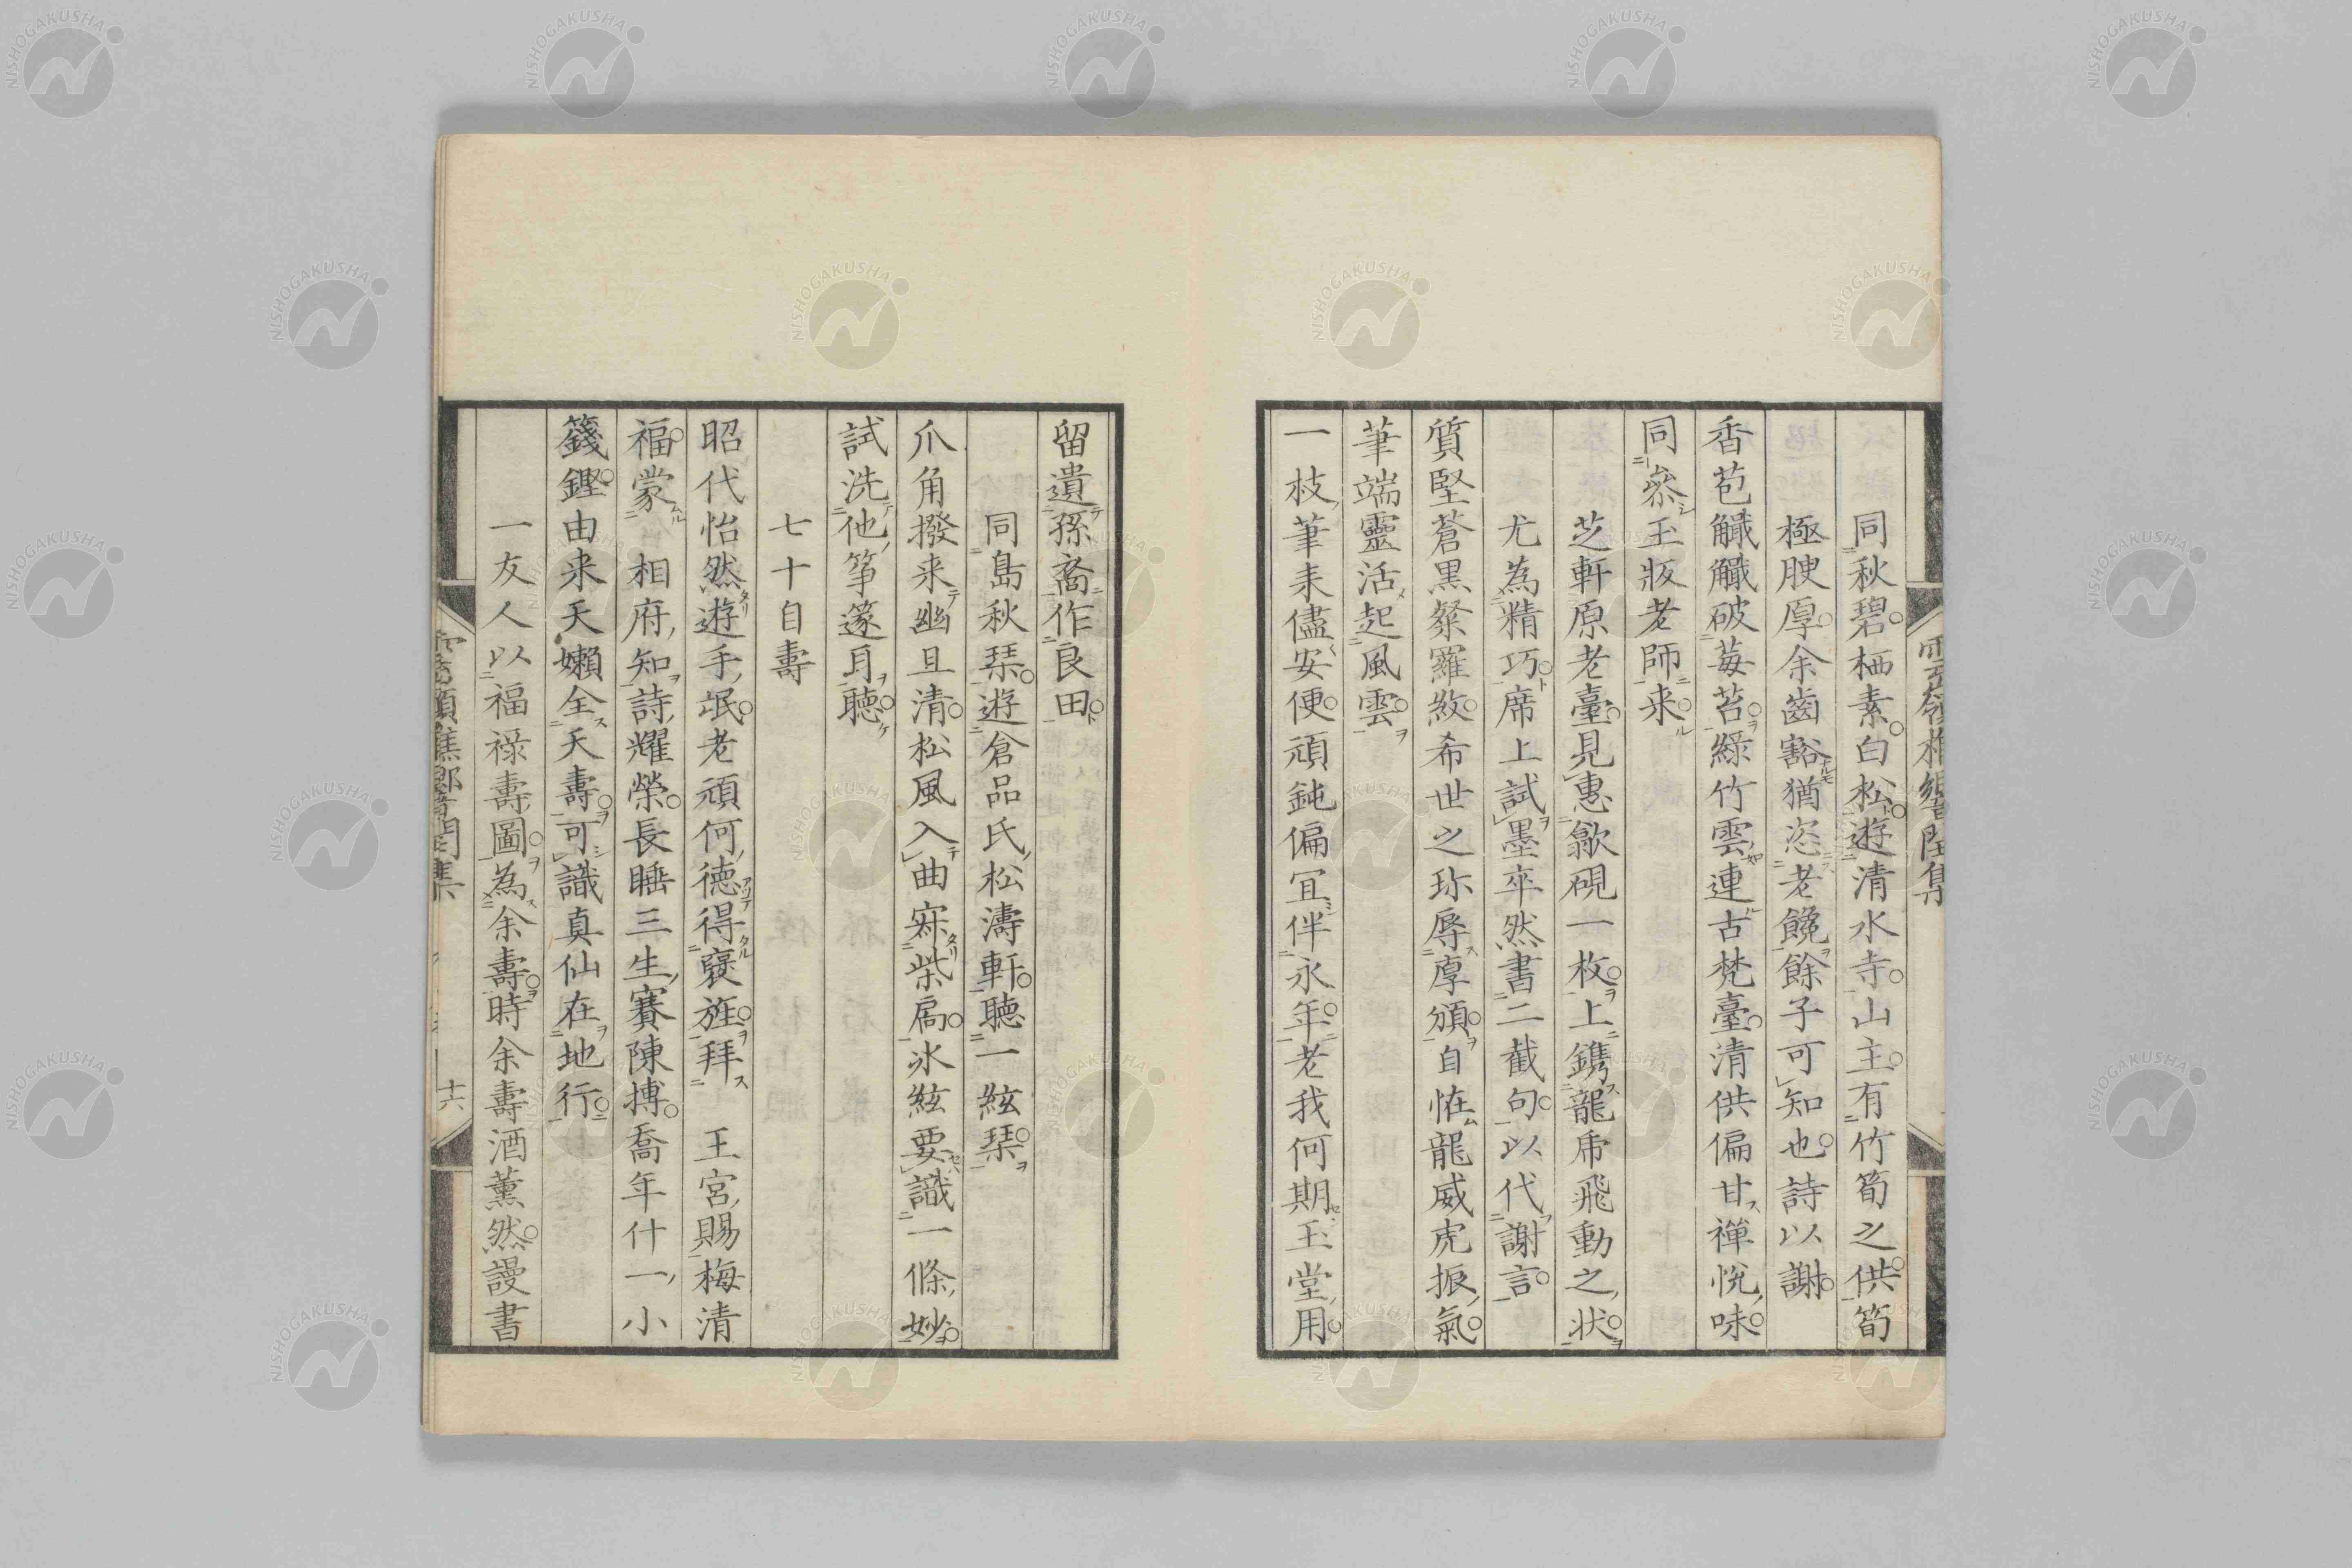 同秋碧栖素白松遊清水寺山主有竹筍之供筍
極腴厚余齒豁猶恣老饞餘子可知也詩以謝
香苞觿觿破莓苔綠竹雲連古梵臺清供偏甘禪悅味
同參玉版老師来
芝軒原老臺見惠歙硯一枚上鐫龍席飛動之狀
尤為精巧席上試墨卒然書二截句以代謝言
質堅蒼黒粲羅紋希世之珎辱厚頒自恠龍威虎振氣
筆端靈活起風雲
一枝筆耒儘安便頑鈍偏冝伴永年老我何期玉堂用
留遺孫裔作良田
同島秋琹遊倉品氏松濤軒聽一絃琹
爪角撥来幽且清松風入曲寐柴扄氷絃要識一條妙
試洗他箏篴耳聽
七十自壽
昭代怡然遊手氓老頑何德得褒旌拜 王宮賜梅清
福蒙 相府知詩耀榮長睡三生賽陳摶喬年什一小
籛鏗由来天嬾全天壽可識真仙在地行
一友人以福祿壽圖為余壽時余壽酒薫然謾書
十六
NISHOGAKUSHA